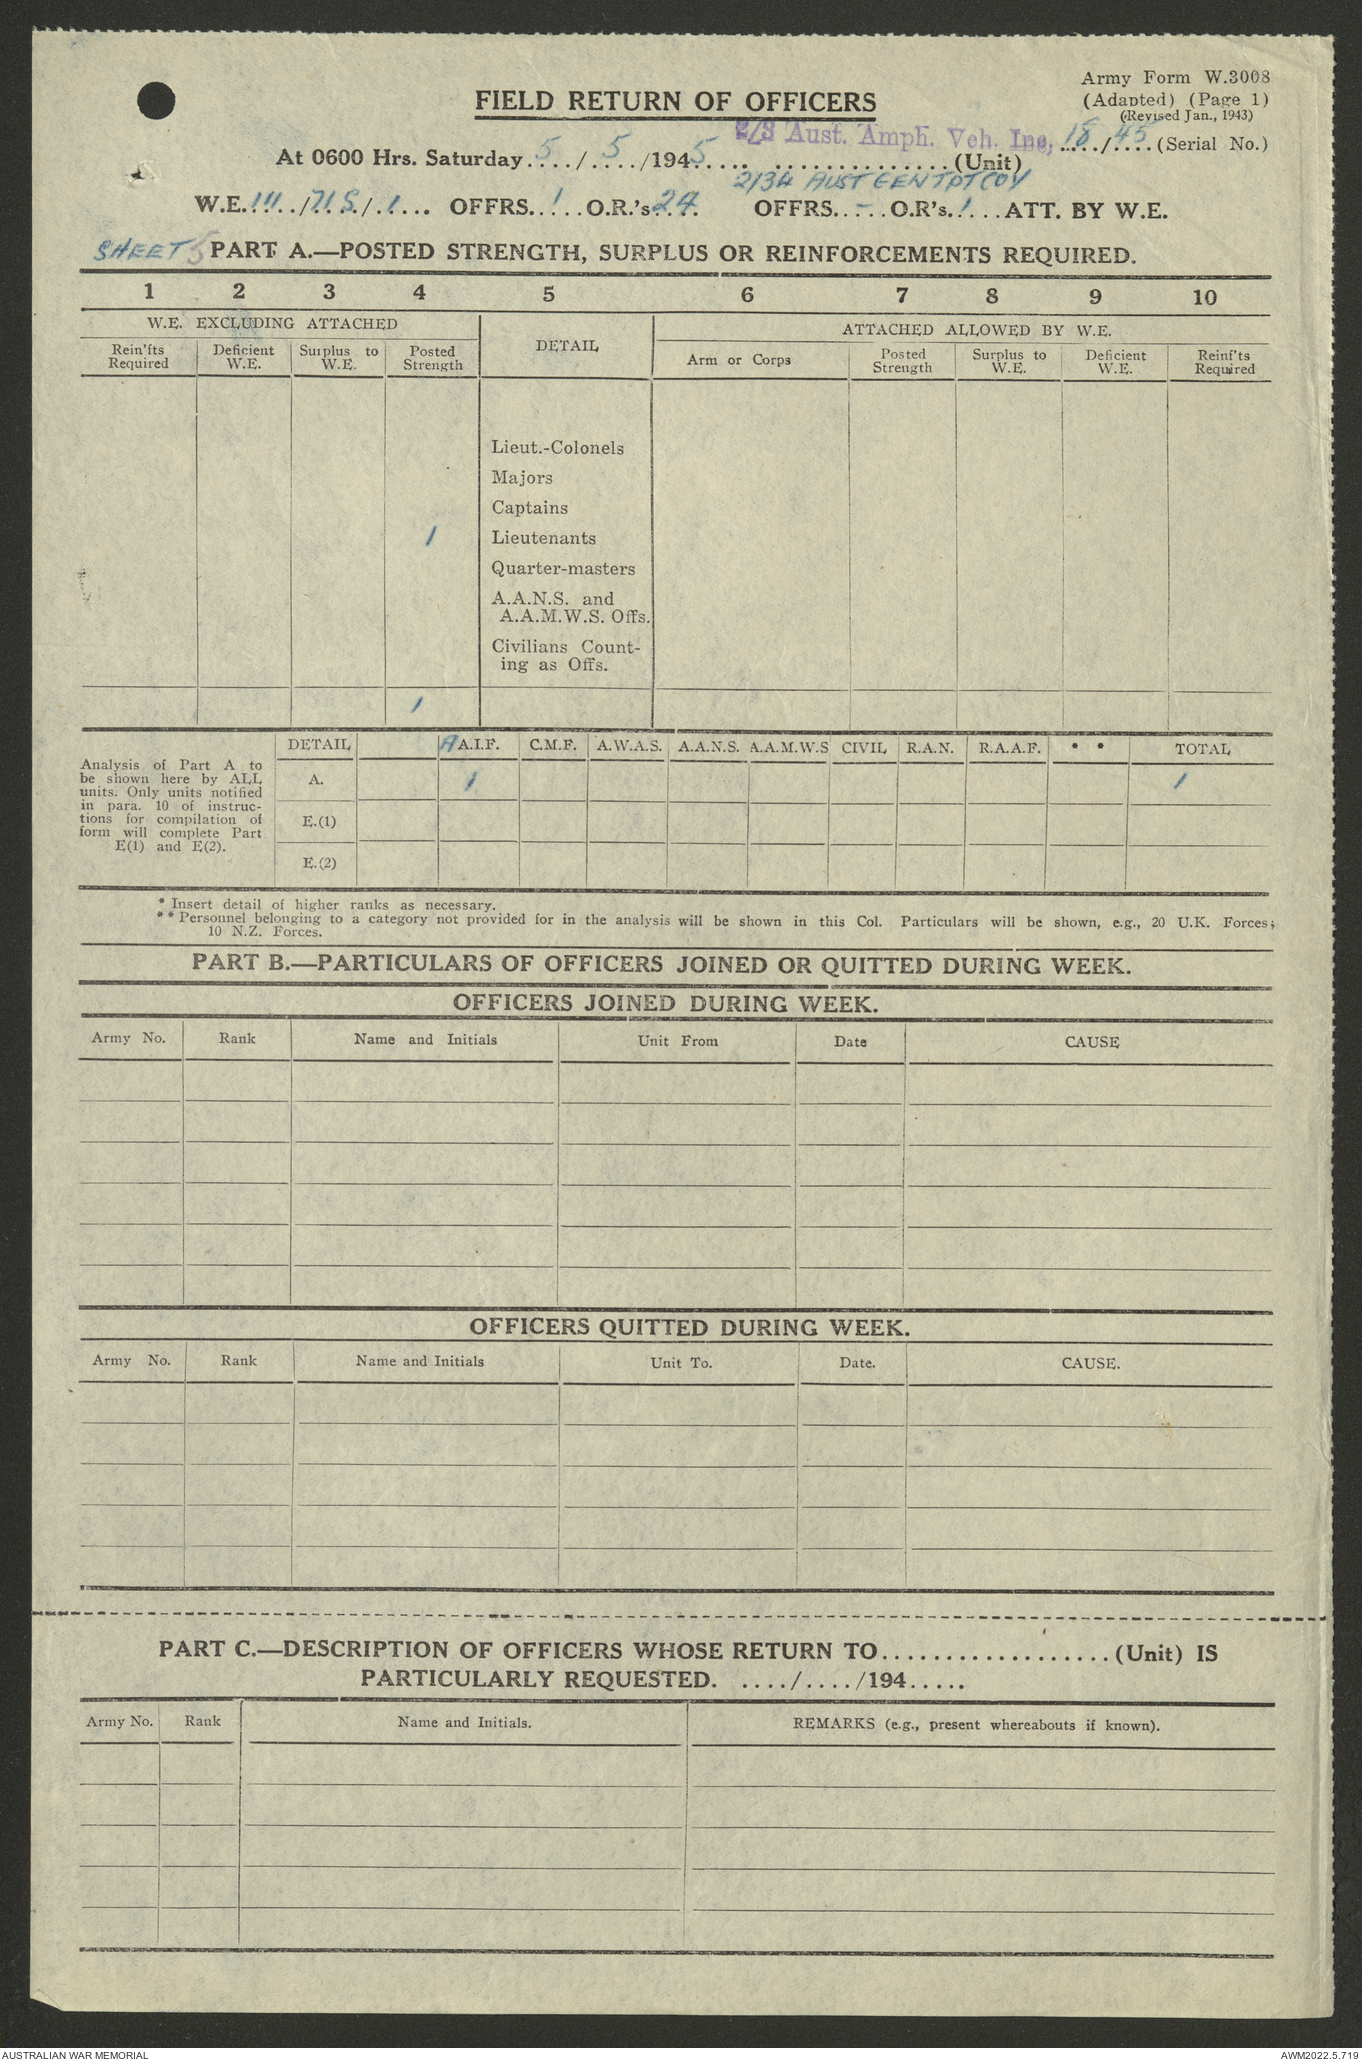 Army Form W.3008
FIELD RETURN OF OFFICERS
(Adapted) (Page 1)
(Revised Jan., 1943)
2/3 Aust. Amph. Veh. Inc,
At 0600 Hrs. Saturday 5/5/1945 (Unit) 18/45 (Serial No.)
2134 AUST GEN TPT COY
W.E. 111/71S/1 OFFRS. 1 O.R.'s 24 OFFRS. - O.R's. 1 ATT. BY W.E.
SHEET 5 PART A.—POSTED STRENGTH, SURPLUS OR REINFORCEMENTS REQUIRED.
1 2 3 4 5 6 7 8 9 10
W.E. EXCLUDING ATTACHED DETAIL ATTACHED ALLOWED BY W.E.
Rein'fts Required Deficient W.E. Surplus to W.E. Posted Strength Arm or Corps Posted Strength Surplus to W.E. Deficient W.E. Reinf'ts Required
Lieut.-Colonels
Majors
Captains
1 Lieutenants
Quarter-masters
A.A.N.S. and
A.A.M.W.S. Offs.
Civilians Count-
ing as Offs.
1
DETAIL A A.I.F. C.M.F. A.W.A.S. A.A.N.S. A.A.M.W.S CIVIL R.A.N. R.A.A.F. * * TOTAL
Analysis of Part A to
be shown here by ALL
units. Only units notified
in para. 10 of instruc-
tions for compilation of
form will complete Part
E(1) and E(2).
A. 1 1
E.(1)
E.(2)
* Insert detail of higher ranks as necessary.
** Personnel belonging to a category not provided for in the analysis will be shown in this Col. Particulars will be shown, e.g., 20 U.K. Forces;
10 N.Z. Forces.
PART B.—PARTICULARS OF OFFICERS JOINED OR QUITTED DURING WEEK.
OFFICERS JOINED DURING WEEK.
Army No. Rank Name and Initials Unit From Date CAUSE
OFFICERS QUITTED DURING WEEK.
Army No. Rank Name and Initials Unit To. Date. CAUSE.
PART C.—DESCRIPTION OF OFFICERS WHOSE RETURN TO...................(Unit) IS
PARTICULARLY REQUESTED. ..../..../194.....
Army No. Rank Name and Initials. REMARKS (e.g., present whereabouts if known).
AUSTRALIAN WAR MEMORIAL AWM2022.5.719